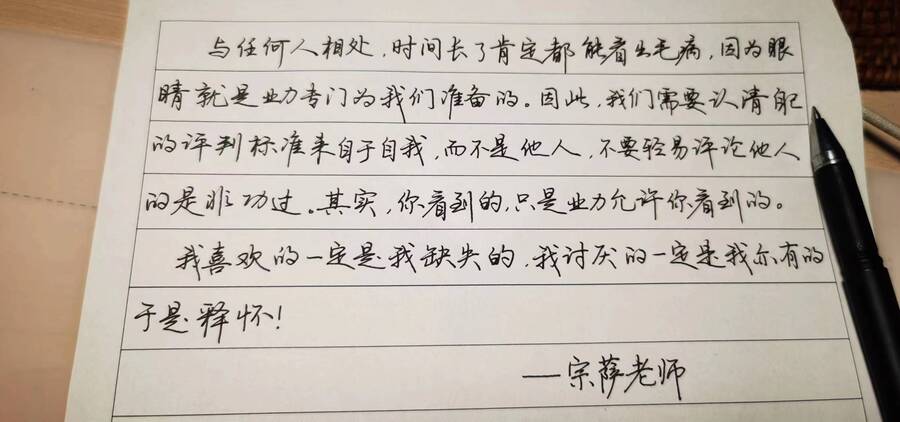 与任何人相处,时间长了肯定都能看出毛病,因为眼
睛就是业力专门为我们准备的。因此,我们需要认清自己
的评判标准来自于自我,而不是他人,不要轻易评论他人
的是非功过。其实,你看到的,只是业力允许你看到的。
我喜欢的一定是我缺失的,我讨厌的一定是我尔有的
于是释怀!
——宗萨老师